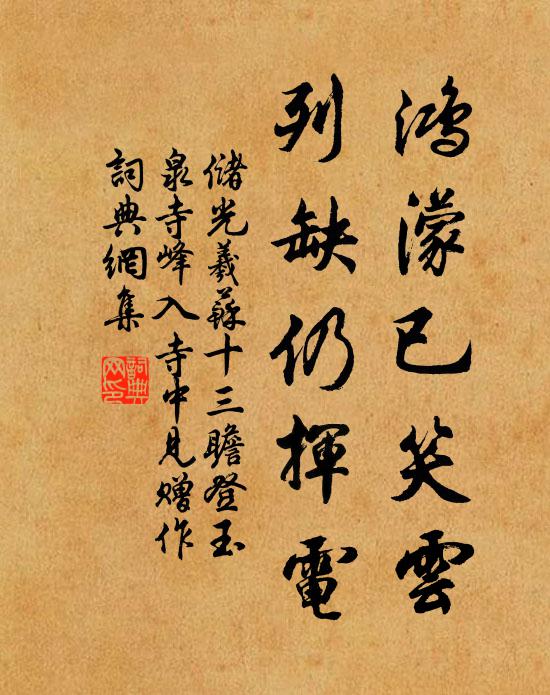 鴻濛已笑雲
列缺仍揮電
儲光羲蘇十三瞻登玉
泉寺峰入寺中見贈作
詞典網集
詞典網印